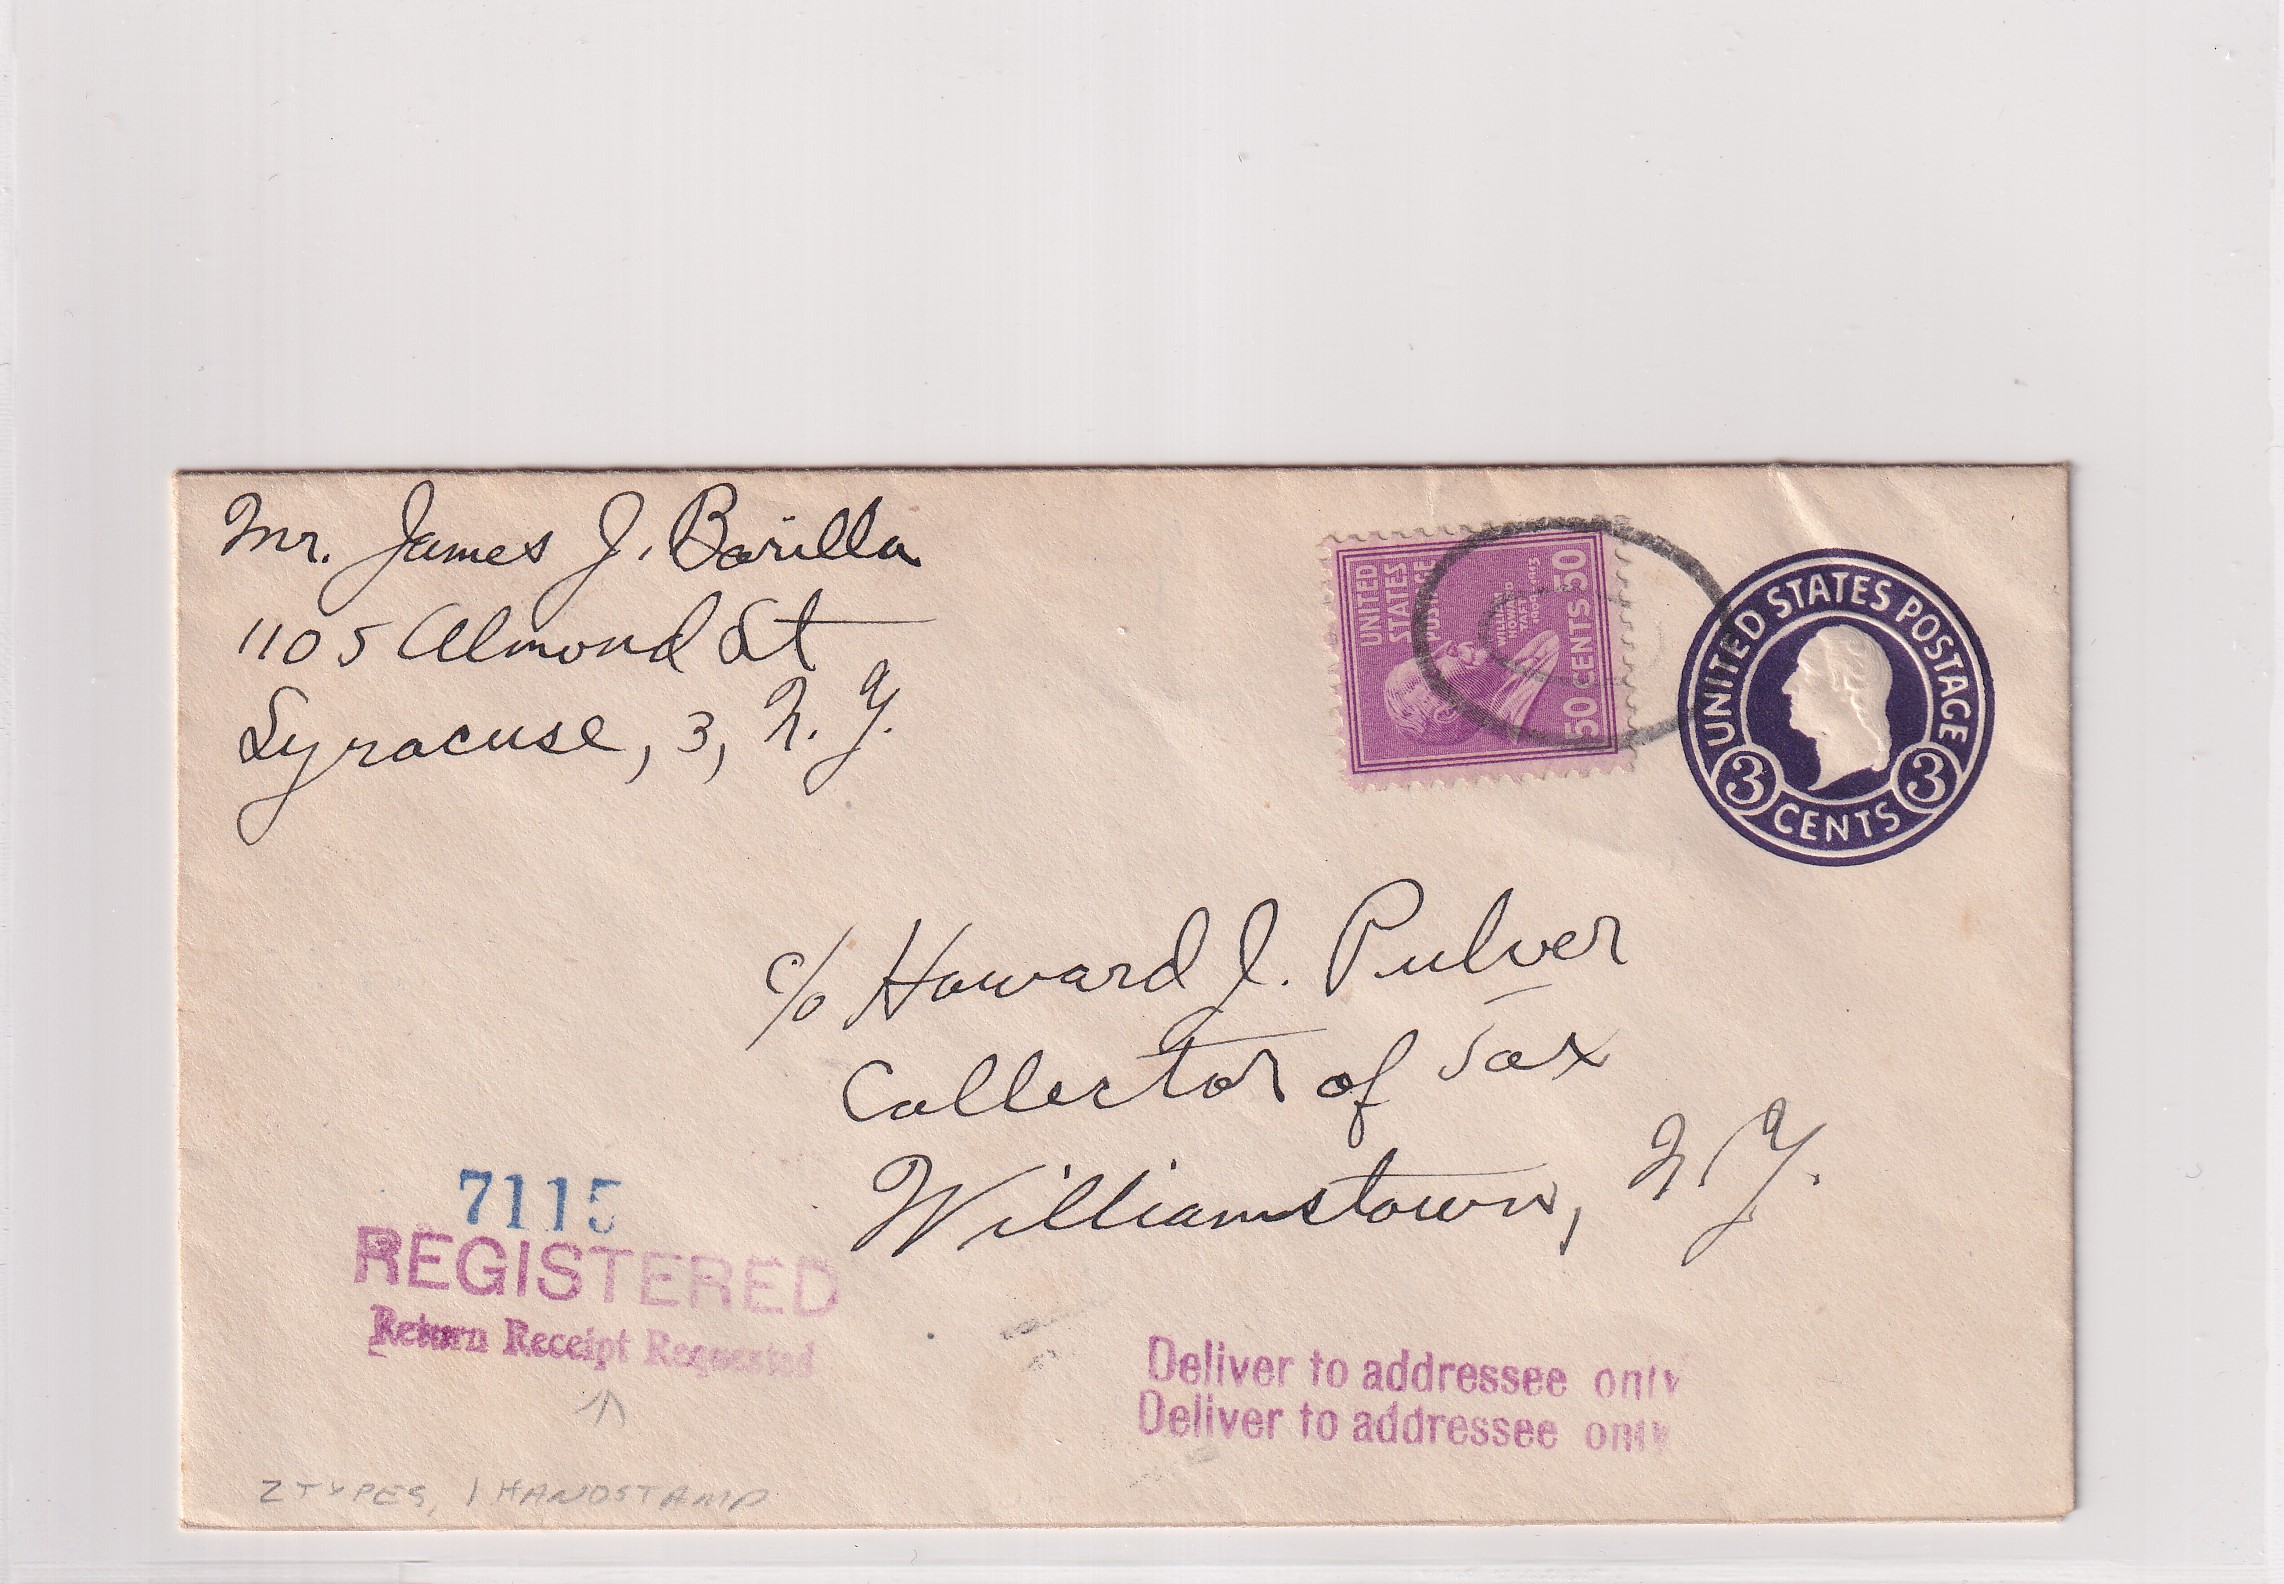 Mr. James J. Barilla
1105 Almond St
Syracuse, 3, N.Y.
UNITED
STATES
POSTAGE
WILLIAM
HOWARD
TAFT
50 CENTS 50
UNITED STATES POSTAGE
3 CENTS 3
c/o Howard J. Pulver
Collector of Tax
Williamstown, N.Y.
7115
REGISTERED
Return Receipt Requested
Deliver to addressee only
Deliver to addressee only
2 TYPES, 1 HANDSTAMP